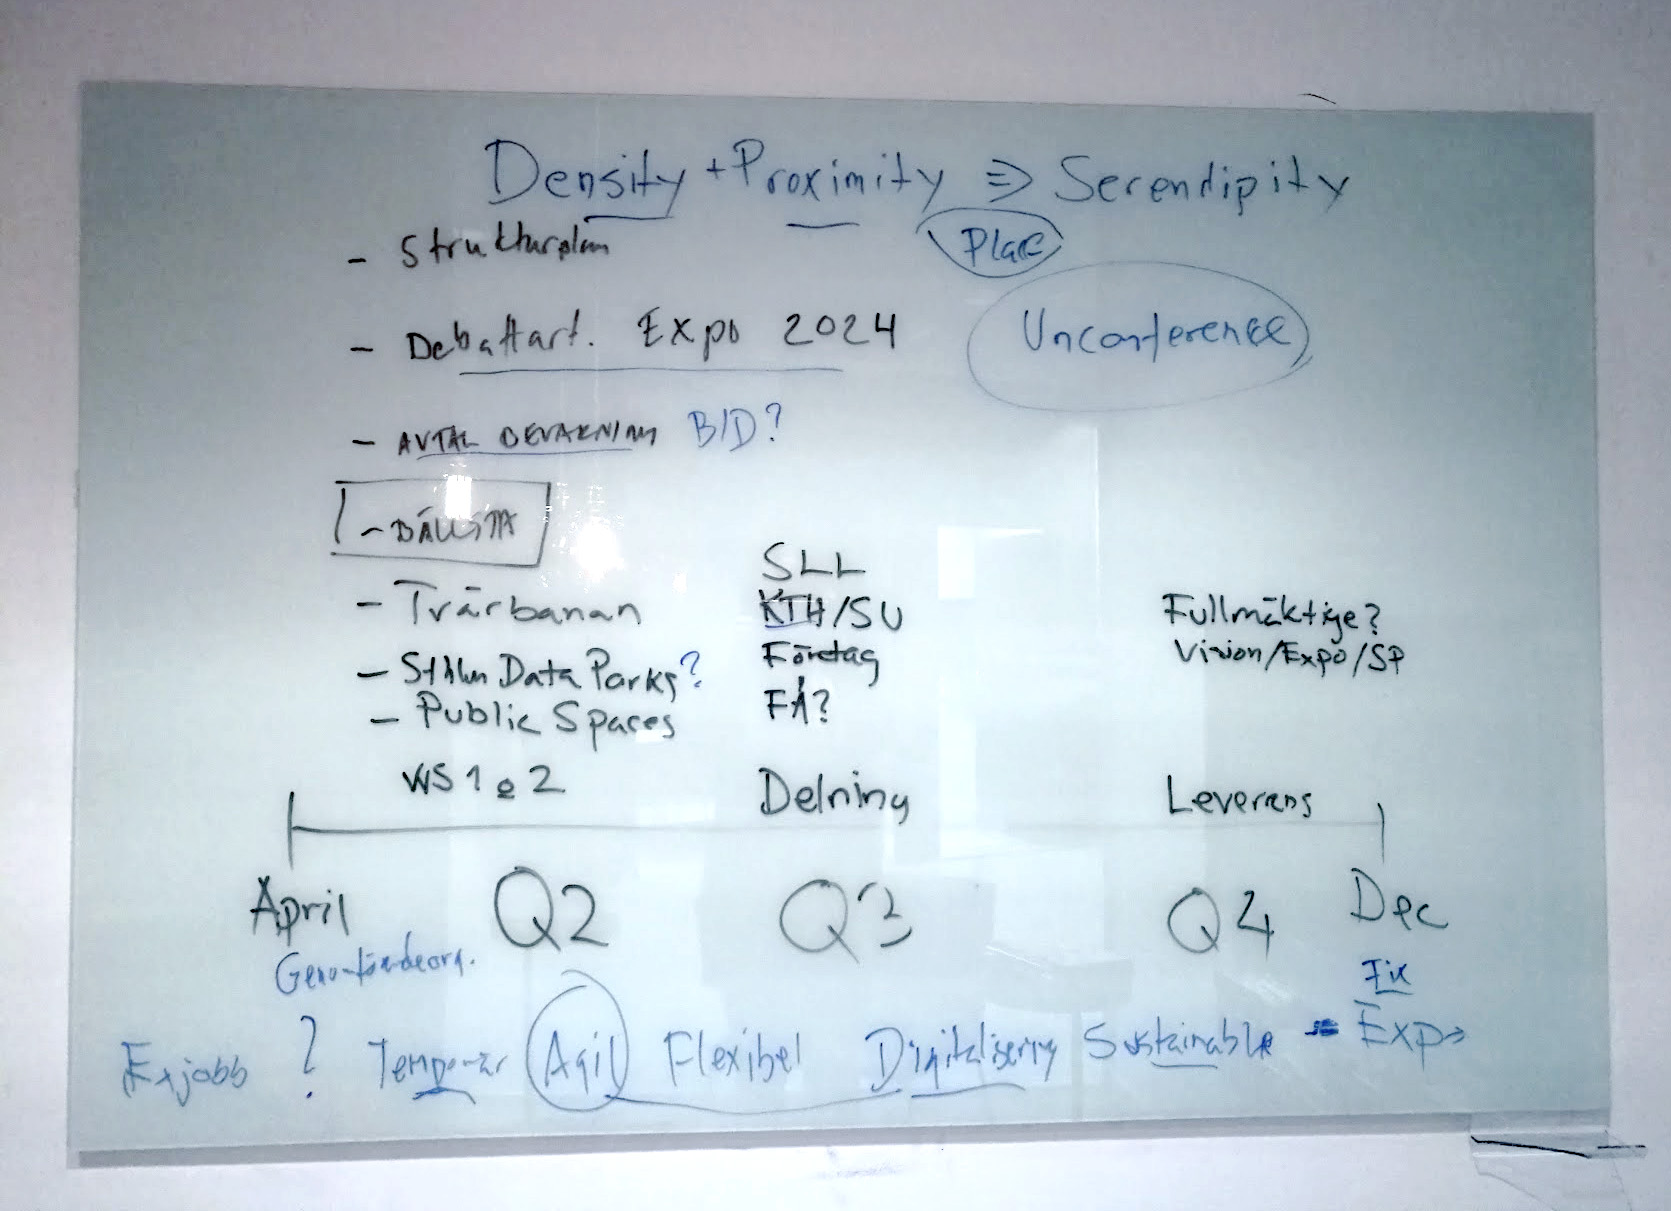 Density + Proximity ⇒ Serendipity
- Strukturplan
Place
- Debattart. Expo 2024
Unconference
- AVTAL BEVAKNING BID?
- BÄLLSTA
- Tvärbanan
- Sthlm Data Parks?
- Public Spaces
SLL
KTH/SU
Företag
FÅ?
Fullmäktige?
Vision/Expo/SP
WS 1 o 2
Delning
Leverans
April Q2 Q3 Q4 Dec
Fix
Exjobb ? Temporär Agil Flexibel Digitalisering Sustainable Expo